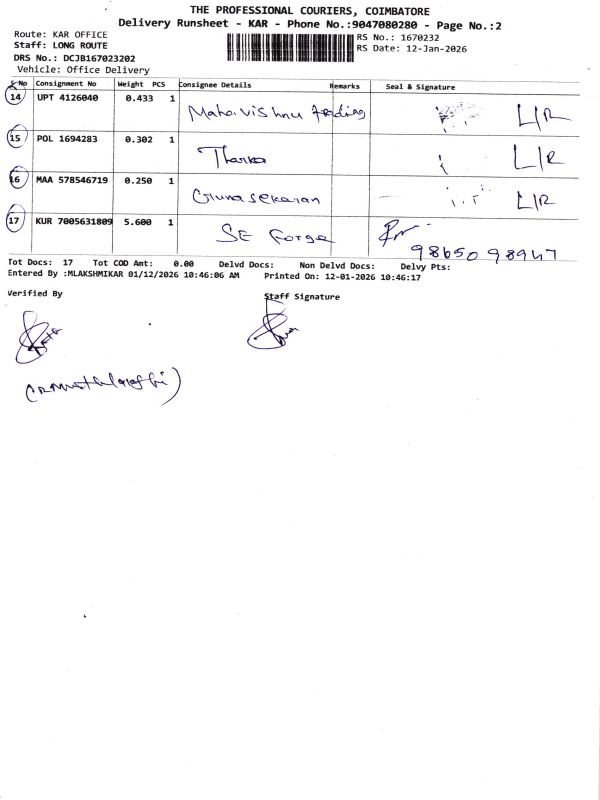 THE PROFESSIONAL COURIERS, COIMBATORE
Delivery Runsheet - KAR - Phone No.:9047080280 - Page No.:2
Route: KAR OFFICE
RS No.: 1670232
Staff: LONG ROUTE
RS Date: 12-Jan-2026
DRS No.: DCJB167023202
Vehicle: Office Delivery
S.No Consignment No Weight PCS Consignee Details Remarks Seal & Signature
14 UPT 4126040 0.433 1 Mahavishnu trading L/R
15 POL 1694283 0.302 1 L/R
16 MAA 578546719 0.250 1 Gunasekaran L/R
17 KUR 7005631809 5.600 1 SE Forge
98650 98947
Tot Docs: 17 Tot COD Amt: 0.00 Delvd Docs: Non Delvd Docs: Delvy Pts:
Entered By :MLAKSHMIKAR 01/12/2026 10:46:06 AM Printed On: 12-01-2026 10:46:17
Verified By
Staff Signature